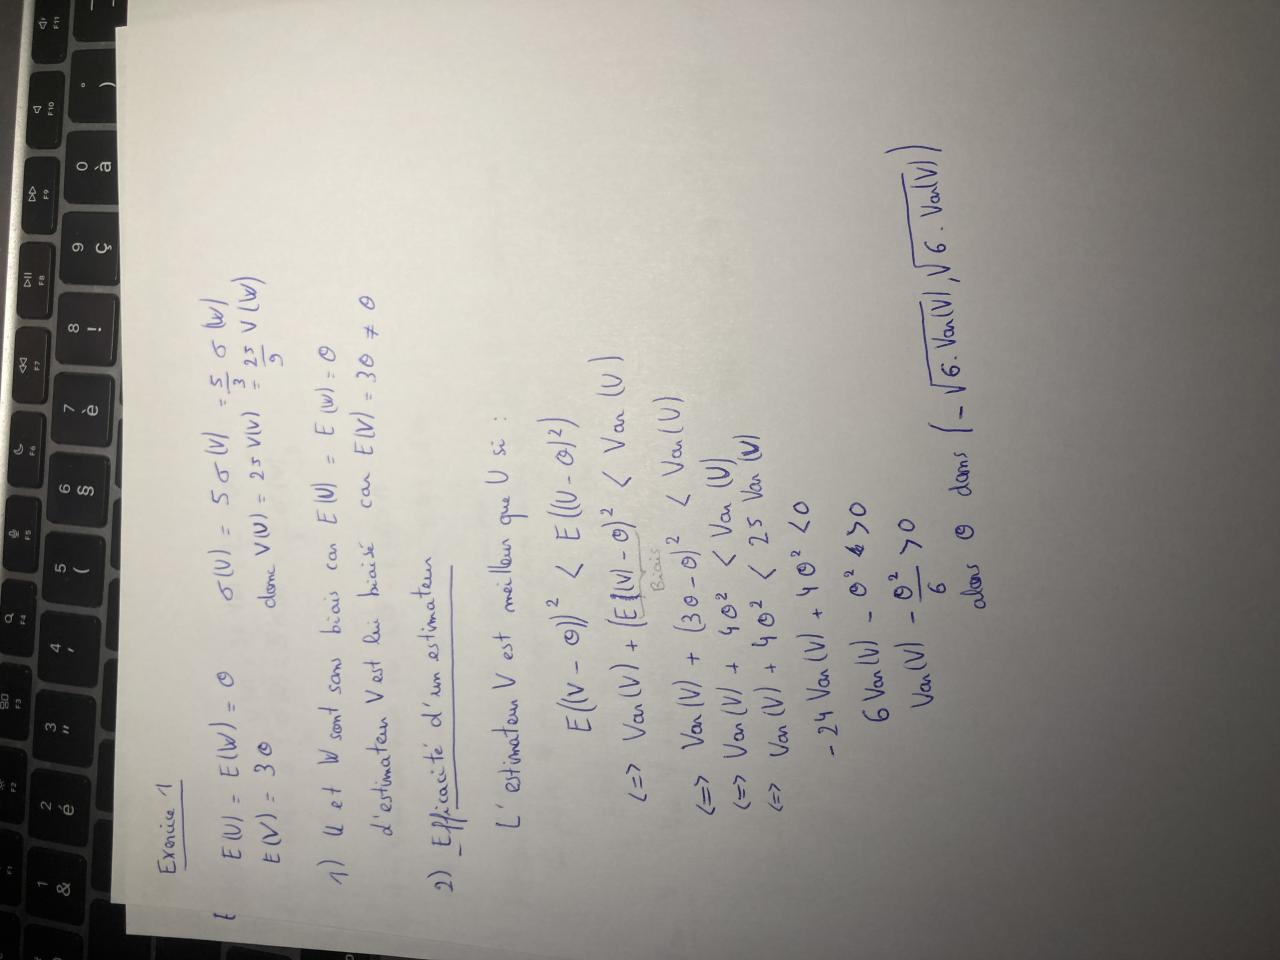 Exercice 1
E(U) = E(W) = θ    σ(U) = 5 σ(V) = 5/3 σ(W)
E(V) = 3θ    donc V(U) = 25 V(V) = 25/9 V(W)
1) U et W sont sans biais car E(U) = E(W) = θ
d'estimateur V est lui biaisé car E(V) = 3θ ≠ θ
2) Efficacité d'un estimateur
L'estimateur V est meilleur que U si :
E((V - θ))² < E((U - θ)²)
<=> Var(V) + (E(V) - θ)² < Var(U)
Biais
<=> Var(V) + (3θ - θ)² < Var(U)
<=> Var(V) + 4θ² < Var(U)
<=> Var(V) + 4θ² < 25 Var(V)
- 24 Var(V) + 4θ² < 0
6 Var(V) - θ² > 0
Var(V) - θ²/6 > 0
alors θ dans (-√6.Var(V), √6.Var(V))